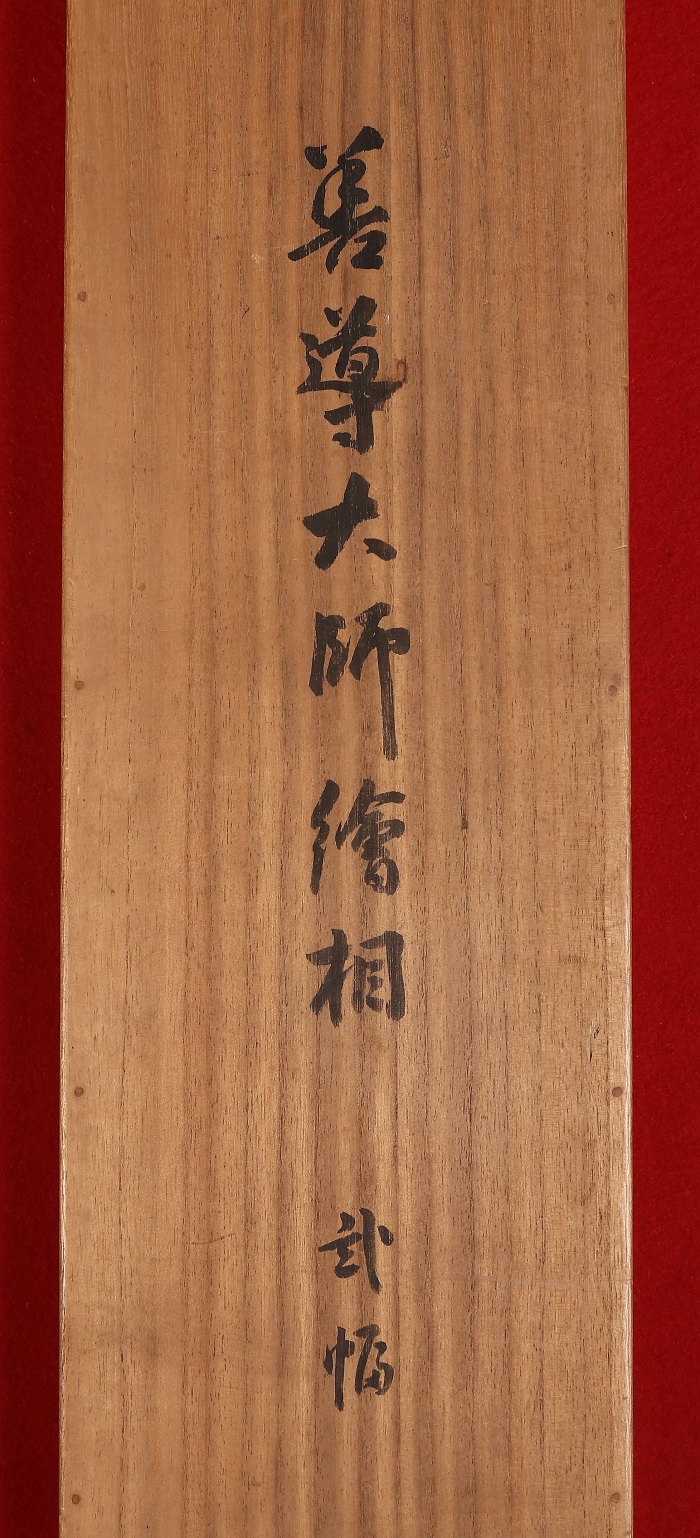 善導大師繪相 弐幅